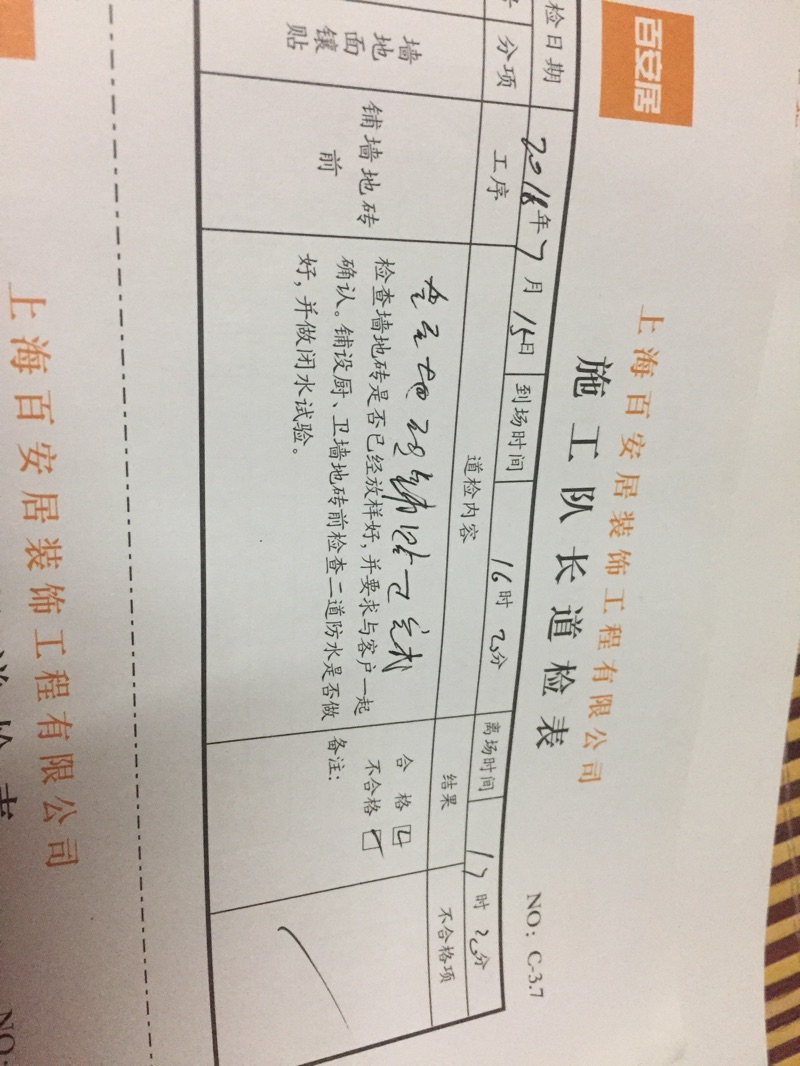 百安居
上海百安居装饰工程有限公司
施工队长道检表
NO：C-3.7
检日期 2018年7月15日 到场时间 16时 分 离场时间 17时 分
分项 工序 道检内容 结果 不合格项
墙地面镶贴
铺墙地砖前
铺贴已完成
检查墙地砖是否已经放样好，并要求与客户一起
确认。铺设厨、卫墙地砖前检查二道防水是否做
好，并做闭水试验。
合格
不合格
备注：
上海百安居装饰工程有限公司
NO: